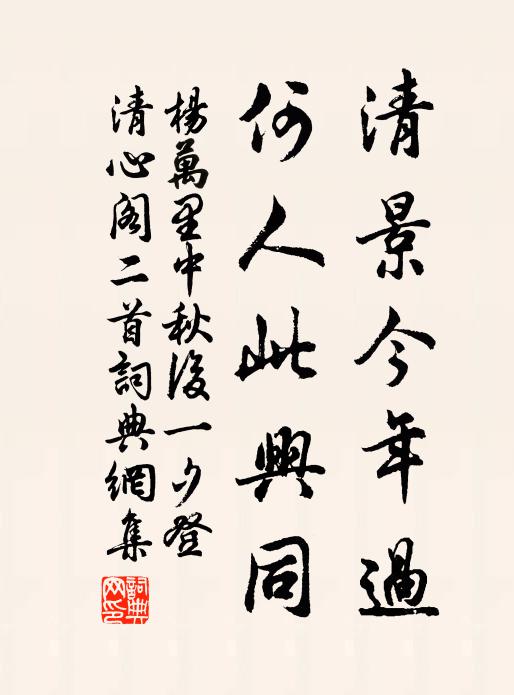 清景今年過
何人此興同
楊萬里中秋後一夕登
清心閣二首詞典網集
詞典
网印